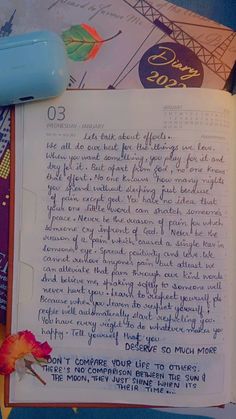 Diary
2022
03
JANUARY
WEDNESDAY - JANUARY
Lets talk about efforts...
We all do our best for the things we love.
When you want something, you pray for it and
try for it. But apart from god, no one knows
that effort. No one knows how many nights
you spend without sleeping just because
of pain except god. You have no idea that
your one little word can snatch someone's
peace. Never be the reason of pain for which
someone cry infront of God. Never be the
reason of a pain which caused a single tear in
someone's eye. Spread positivity and love. We
cannot remove anyone's pain but atleast we
can alleviate that pain through our kind words
And believe me, speaking softly to someone will
never hurt you. Learn to respect yourself
Because when you learn to respect yourself,
people will automatically start respecting you.
You have every right to do whatever makes you
happy. Tell yourself that you
DESERVE SO MUCH MORE
DON'T COMPARE YOUR LIFE TO OTHERS.
THERE'S NO COMPARISON BETWEEN THE SUN &
THE MOON, THEY JUST SHINE WHEN ITS
THEIR TIME...